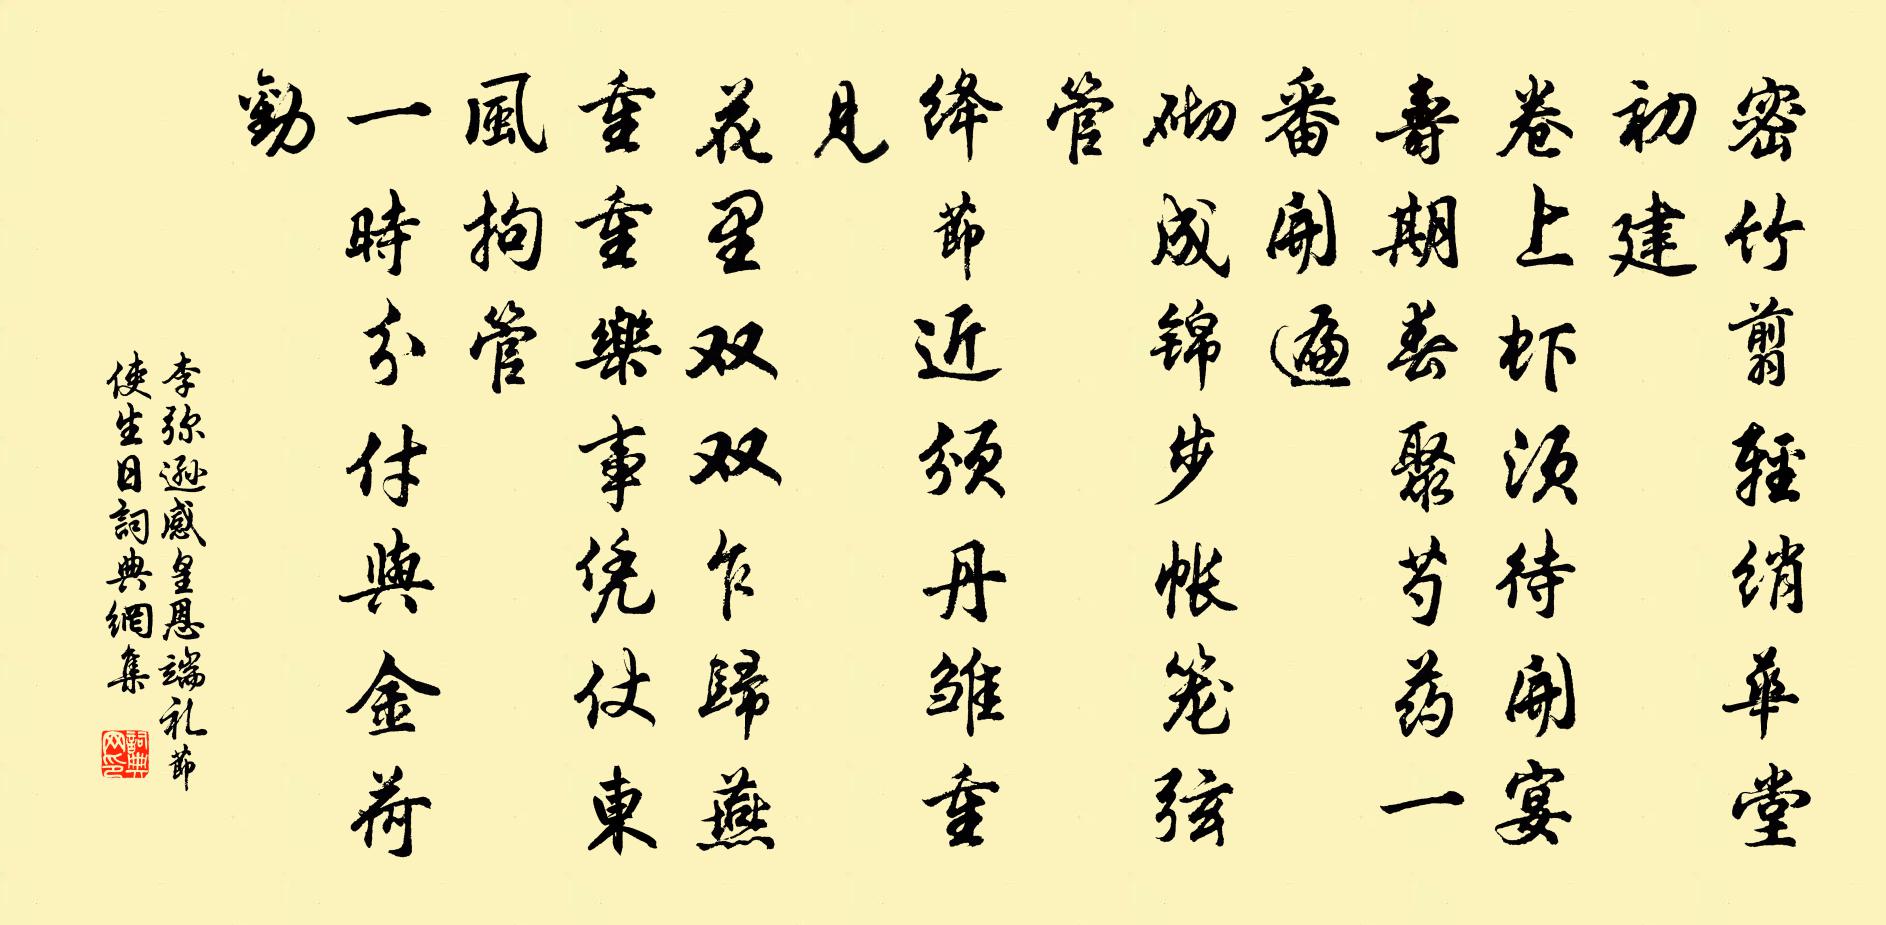 密竹剪輕绡華堂
初建
卷上虾须待開宴
壽期春聚芍药一
番開遍
砌成锦步帐笼弦
管
绛節近颁丹雏重
見
花里双双乍歸燕
重重樂事凭仗東
風拘管
一時分付與金荷
勸
李弥逊感皇恩端礼節
使生日詞典網集
詞典
网印